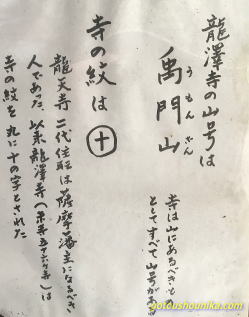 龍澤寺の山号は
禹門山
うもんざん
寺は山にあるべきもの
としてすべて山号がある
寺の紋は
十
龍天寺二代住職は薩摩藩主になるべき
人であった、以来龍澤寺(末寺五十六ヶ寺)は
寺の紋を丸に十の字とされた
gotoushigunika.com